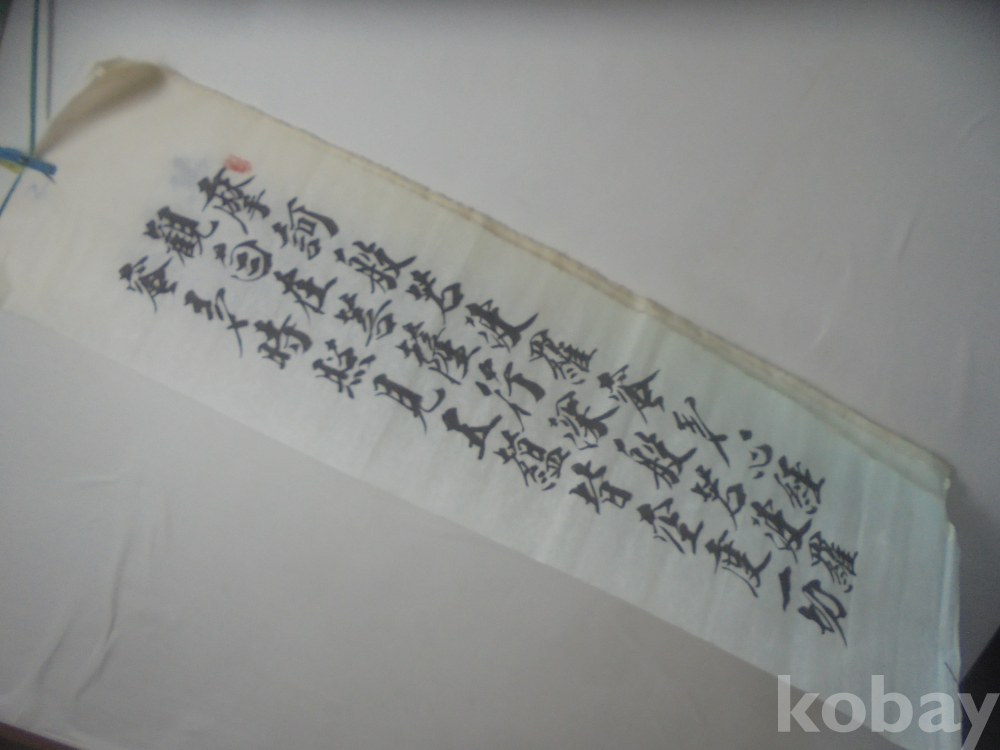 摩訶般若波羅蜜多心經
觀自在菩薩行深般若波羅
蜜多時照見五蘊皆空度一切
kobay